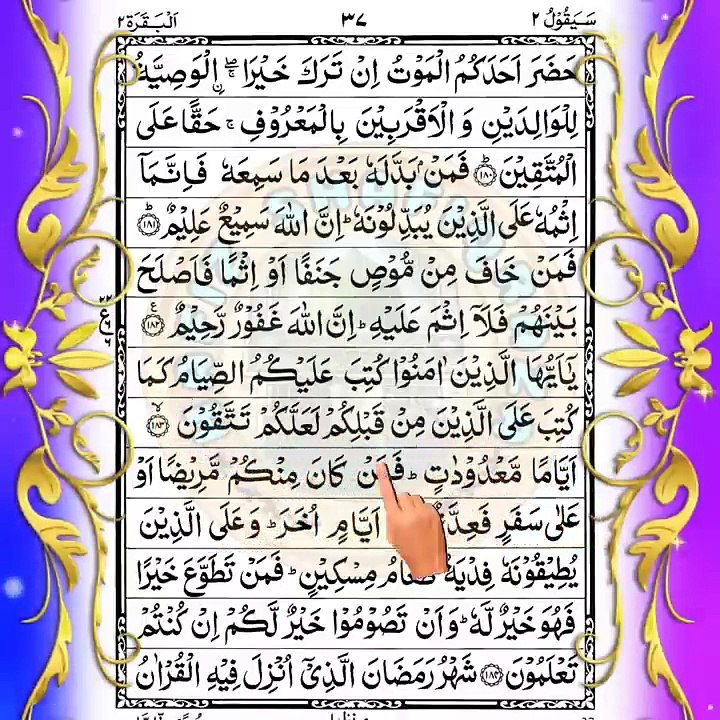 سَيَقُوْلُ ٢ ٣٧ اَلْبَقَرَة ٢
حَضَرَ اَحَدَكُمُ الْمَوْتُ اِنْ تَرَكَ خَيْرَا ۖۚ اۨلْوَصِيَّةُ
لِلْوَالِدَيْنِ وَ الْاَقْرَبِيْنَ بِالْمَعْرُوْفِ ۚ حَقًّا عَلَى
الْمُتَّقِيْنَ ؕ‏ ﴿۱۸۰﴾ فَمَنْۢ بَدَّلَهٗ بَعْدَ مَا سَمِعَهٗ فَاِنَّمَآ
اِثْمُهٗ عَلَى الَّذِيْنَ يُبَدِّلُوْنَهٗ ؕ اِنَّ اللّٰهَ سَمِيْعٌ عَلِيْمٌ ؕ ﴿۱۸۱﴾
فَمَنْ خَافَ مِنْ مُّوْصٍ جَنَفًا اَوْ اِثْمًا فَاَصْلَحَ
بَيْنَهُمْ فَلَاۤ اِثْمَ عَلَيْهِ ؕ اِنَّ اللّٰهَ غَفُوْرٌ رَّحِيْمٌ ﴿۱۸۲﴾ ع
٢٢
ع
٦
يٰٓاَيُّهَا الَّذِيْنَ اٰمَنُوْا كُتِبَ عَلَيْكُمُ الصِّيَامُ كَمَا
كُتِبَ عَلَى الَّذِيْنَ مِنْ قَبْلِكُمْ لَعَلَّكُمْ تَتَّقُوْنَ ۙ ﴿۱۸۳﴾
اَيَّامًا مَّعْدُوْدٰتٍ ؕ فَمَنْ كَانَ مِنْكُمْ مَّرِيْضًا اَوْ
عَلٰى سَفَرٍ فَعِدَّةٌ اَيَّامٍ اُخَرَ ؕ وَعَلَى الَّذِيْنَ
يُطِيْقُوْنَهٗ فِدْيَةٌ طَعَامُ مِسْكِيْنٍ ؕ فَمَنْ تَطَوَّعَ خَيْرًا
فَهُوَ خَيْرٌ لَّهٗ ؕ وَاَنْ تَصُوْمُوْا خَيْرٌ لَّكُمْ اِنْ كُنْتُمْ
تَعْلَمُوْنَ ﴿۱۸۴﴾ شَهْرُ رَمَضَانَ الَّذِيْٓ اُنْزِلَ فِيْهِ الْقُرْاٰنُ